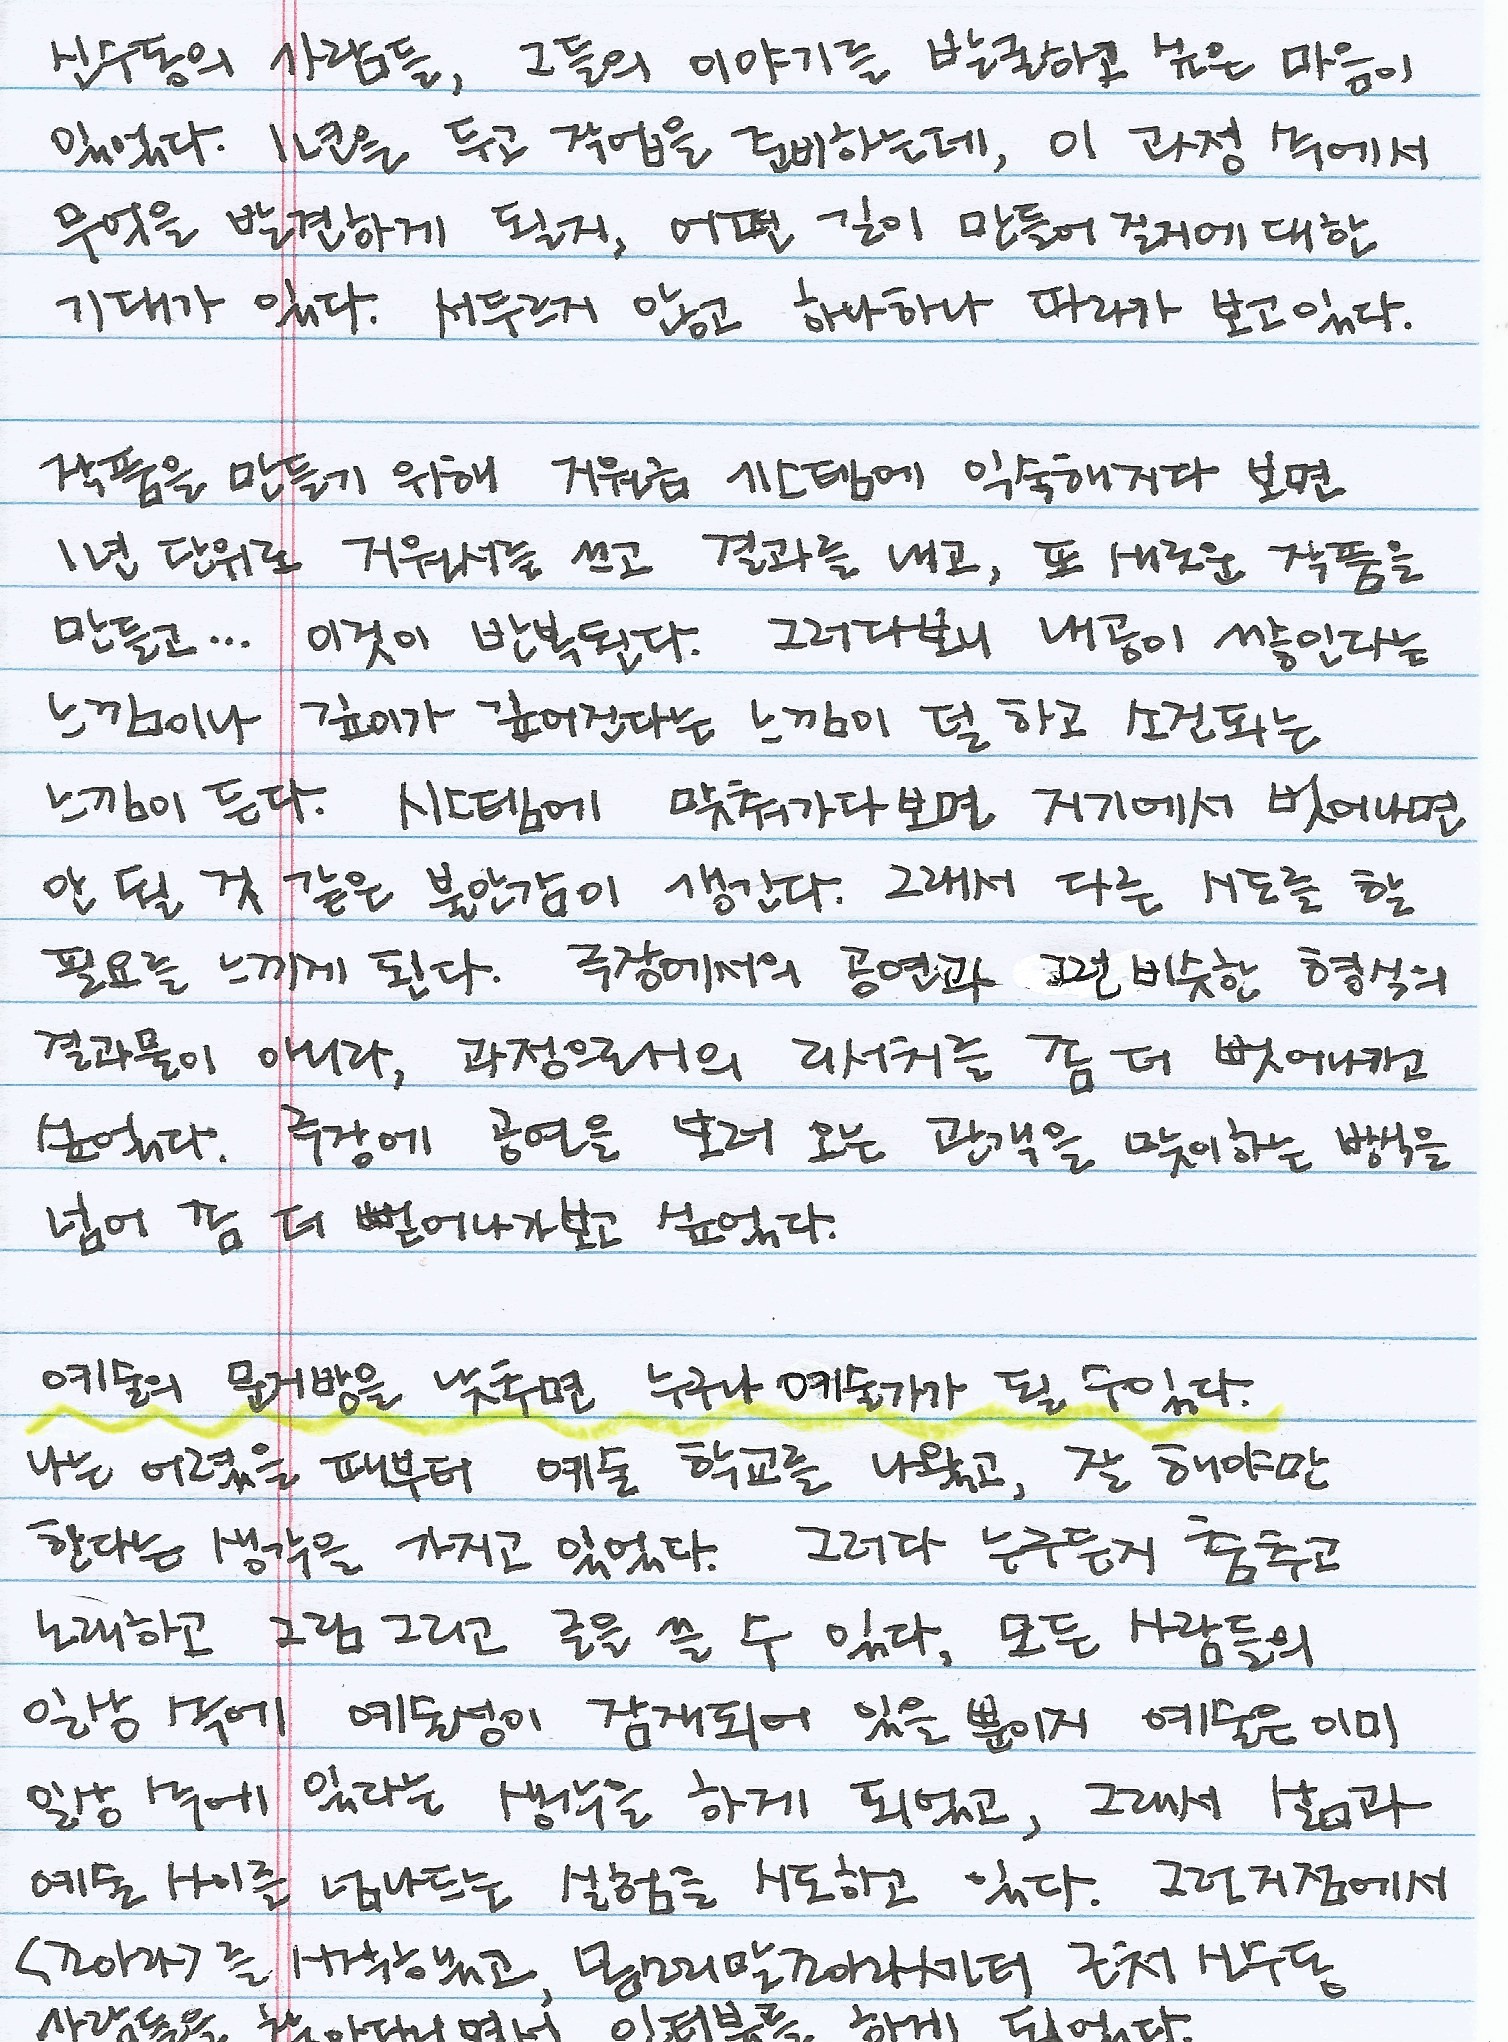 신수동의 사람들, 그들의 이야기를 발굴하고 싶은 마음이
있었다. 1년을 두고 작업을 준비하는데, 이 과정 속에서
무엇을 발견하게 될지, 어떤 길이 만들어 질지에 대한
기대가 있다. 서두르지 않고 하나하나 따라가 보고있다.
작품을 만들기 위해 지원금 시스템에 익숙해지다 보면
1년 단위로 지원서를 쓰고 결과를 내고, 또 새로운 작품을
만들고... 이것이 반복된다. 그러다보니 내공이 쌓인다는
느낌이나 깊이가 깊어진다는 느낌이 덜 하고 소진되는
느낌이 든다. 시스템에 맞춰가다보면 저기에서 벗어나면
안 될 것 같은 불안감이 생긴다. 그래서 다른 시도를 할
필요를 느끼게 된다. 극장에서의 공연과 그런 비슷한 형식의
결과물이 아니라, 과정으로서의 리서치를 좀 더 뻗어나가고
싶었다. 극장에 공연을 보러 오는 관객을 맞이하는 방식을
넘어 좀 더 뻗어나가보고 싶었다.
예술의 문지방을 낮추면 누구나 예술가가 될 수있다.
나는 어렸을 때부터 예술 학교를 나왔고, 잘 해야만
한다는 생각을 가지고 있었다. 그러다 누구든지 춤추고
노래하고 그림그리고 글을 쓸 수 있다, 모든 사람들의
일상 속에 예술성이 잠재되어 있을 뿐이지 예술은 이미
일상 속에 있다는 생각을 하게 되었고, 그래서 삶과
예술 사이를 넘나드는 실험을 시도하고 있다. 그런지점에서
<꼬아라>를 시작하였고, 몸소리말조아라센터 근처 신수동
사람들을 찾아다니면서 인터뷰를 하게 되었다.